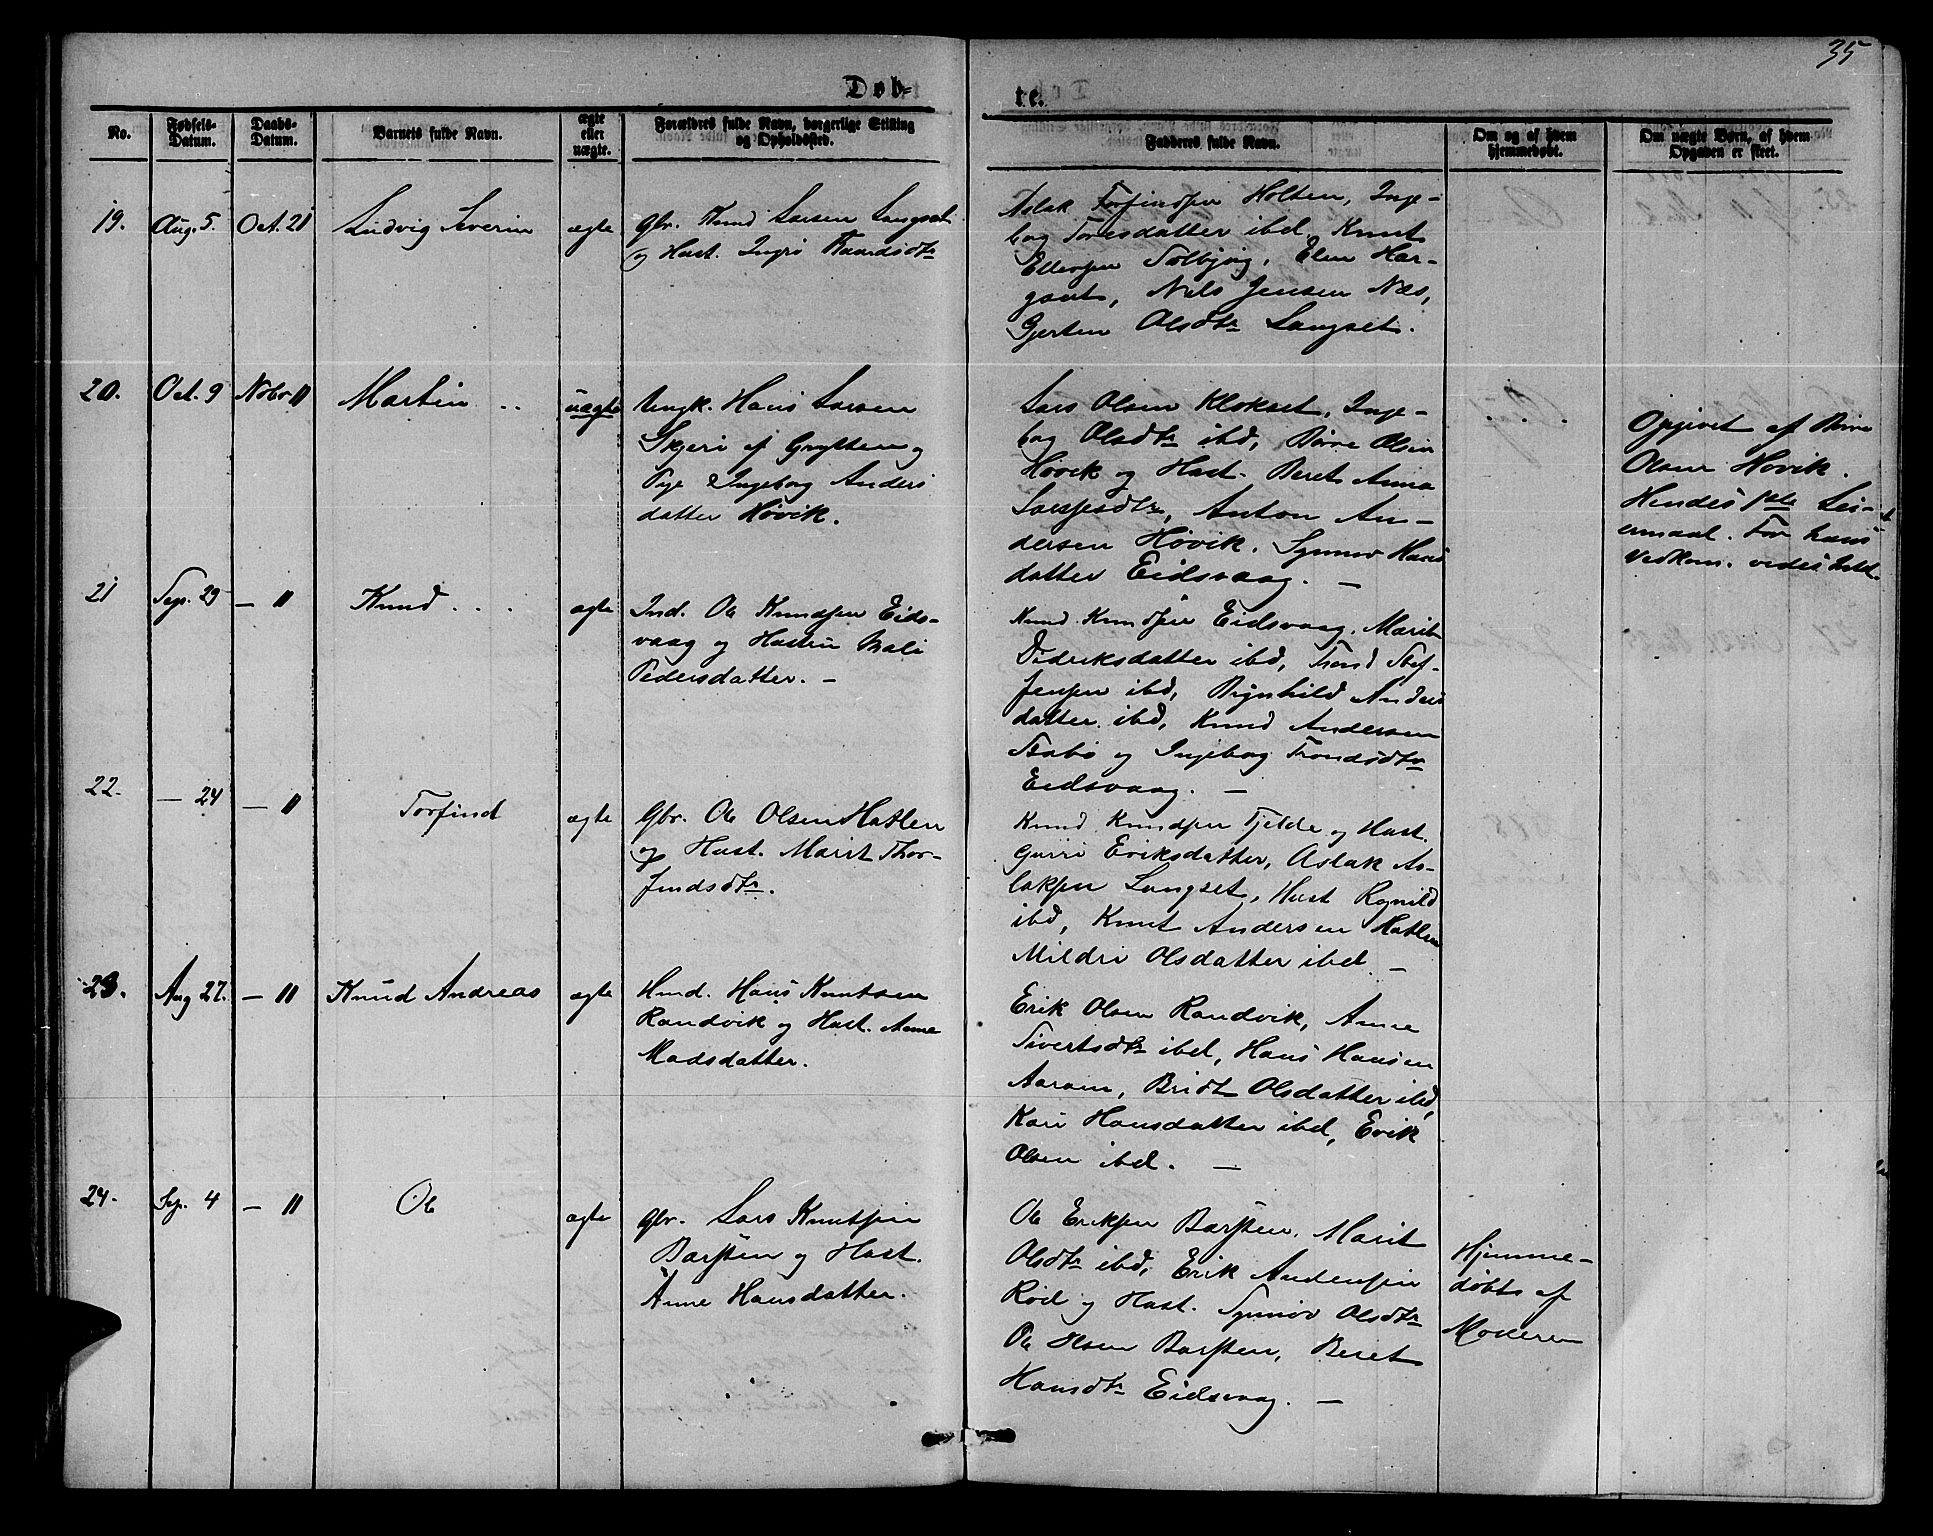 35
Døb-
te.
No.
Fødsels-
Datum.
Daabs-
Datum.
Barnets fulde Navn.
ægte
eller
uægte.
Forældres fulde Navn, borgerlige Stilling
og Opholdssted.
Faddernes fulde Navn.
Om og af hvem
hjemmedøbt.
Om uægte Børn, af hvem
Opgaven er skeet.
19.
Aug. 5.
Oct. 21
Ludvig Severin
ægte
Gbr. Knud Larsen Langset
og Hust. Ingri
Aslak Torfindsen Holten, Inge-
bog Toresdatter ibd, Knut
Ellevsen Solbjørg, Elen Har-
gaut, Nils Jensen Næs,
Gjerten Olsdtr Langset.
20.
Oct. 9
Nobr 11
Martin
uægte
Ungk. Hans Larsen
Skjeri af Grytten og
Pige Ingeborg Anders
datter Høvik.
Lars Olsen Klokset, Inge-
bog Olsdtr ibd, Børre Olsen
Høvik og Hust. Beret Anna
Anton An-
dersen Høvik. Synnøv Hans
datter Eidsvaag. —
Opgivet af Børre
Olsen Høvik.
Hendes 1ste Lei-
ermaal. For hans
Vedkom.
21
Sep. 29
— 11
Knud
ægte
Ind. Ole Knudsen Eids-
vaag og Hustru Mali
Pedersdatter. —
Knud Knudsen Eidsvaag, Marit
Dideriksdatter ibd, Trond Stef-
fensen ibd, Brynhild Anders
datter ibd, Knud Andersen
Stabø og Ingeborg Trondsdtr
Eidsvaag. —
22.
— 24
— 11
Torfind
ægte
Gbr. Ole Olsen Hatlen
og Hust. Marit Thor-
findsdtr.
Knud Knudsen Fjelde og Hust.
Gurri Eriksdatter, Aslak As-
laksen Langset, Hust Rgnild
ibd, Knut Andersen Hatlen
Mildri Olsdatter ibd —
23.
Aug 27.
— 11
Knud Andreas
ægte
Hmd. Hans Knutsen
Randvik og Hust. Anne
Madsdatter.
Erik Olsen Randvik, Anne
Sivertsdtr ibd, Hans Hansen
Aaram, Bridt Olsdatter ibd,
Kari Hansdatter ibd, Erik
Olsen ibd. —
24.
Sep. 4
— 11
Ole
ægte
Gbr. Lars Knutsen
Barsten og Hust.
Anne Hansdatter.
Ole Eriksen Barsten, Marit
Olsdtr ibd, Erik Andersen
Rød og Hust. Synnøv Olsdtr
Ole Olsen Barsten, Beret
Hansdtr Eidsvaag. —
Hjemme-
døbt af
Moderen